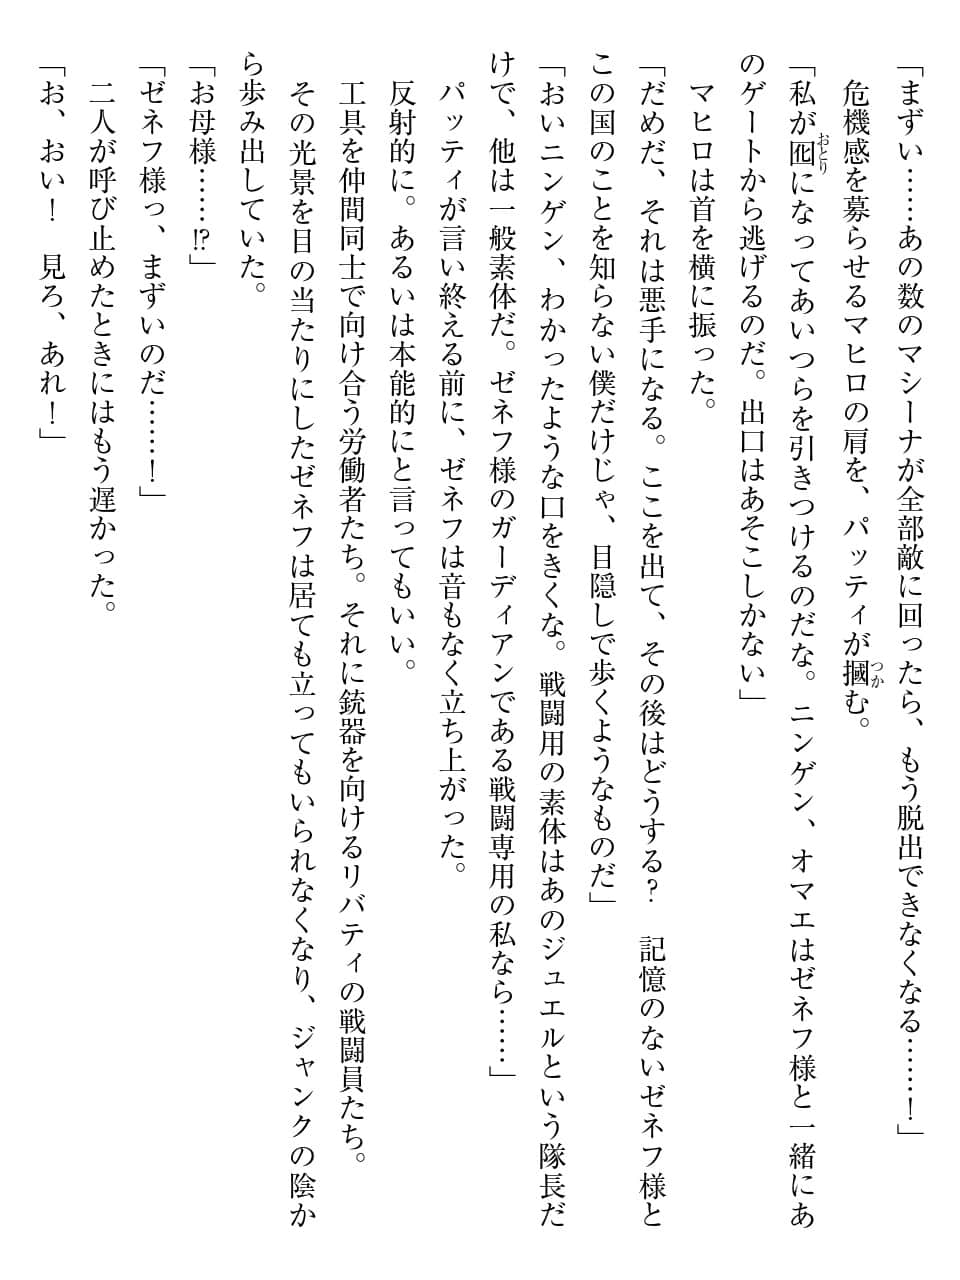 「まずい……あの数のマシーナが全部敵に回ったら、もう脱出できなくなる……！」
　危機感を募らせるマヒロの肩を、パッティが摑む。
「私が囮になってあいつらを引きつけるのだな。ニンゲン、オマエはゼネフ様と一緒にあ
のゲートから逃げるのだ。出口はあそこしかない」
　マヒロは首を横に振った。
「だめだ、それは悪手になる。ここを出て、その後はどうする？　記憶のないゼネフ様と
この国のことを知らない僕だけじゃ、目隠しで歩くようなものだ」
「おいニンゲン、わかったような口をきくな。戦闘用の素体はあのジュエルという隊長だ
けで、他は一般素体だ。ゼネフ様のガーディアンである戦闘専用の私なら……」
　パッティが言い終える前に、ゼネフは音もなく立ち上がった。
　反射的に。あるいは本能的にと言ってもいい。
　工具を仲間同士で向け合う労働者たち。それに銃器を向けるリバティの戦闘員たち。
　その光景を目の当たりにしたゼネフは居ても立ってもいられなくなり、ジャンクの陰か
ら歩み出していた。
「お母様……⁉」
「ゼネフ様っ、まずいのだ……！」
　二人が呼び止めたときにはもう遅かった。
「お、おい！　見ろ、あれ！」